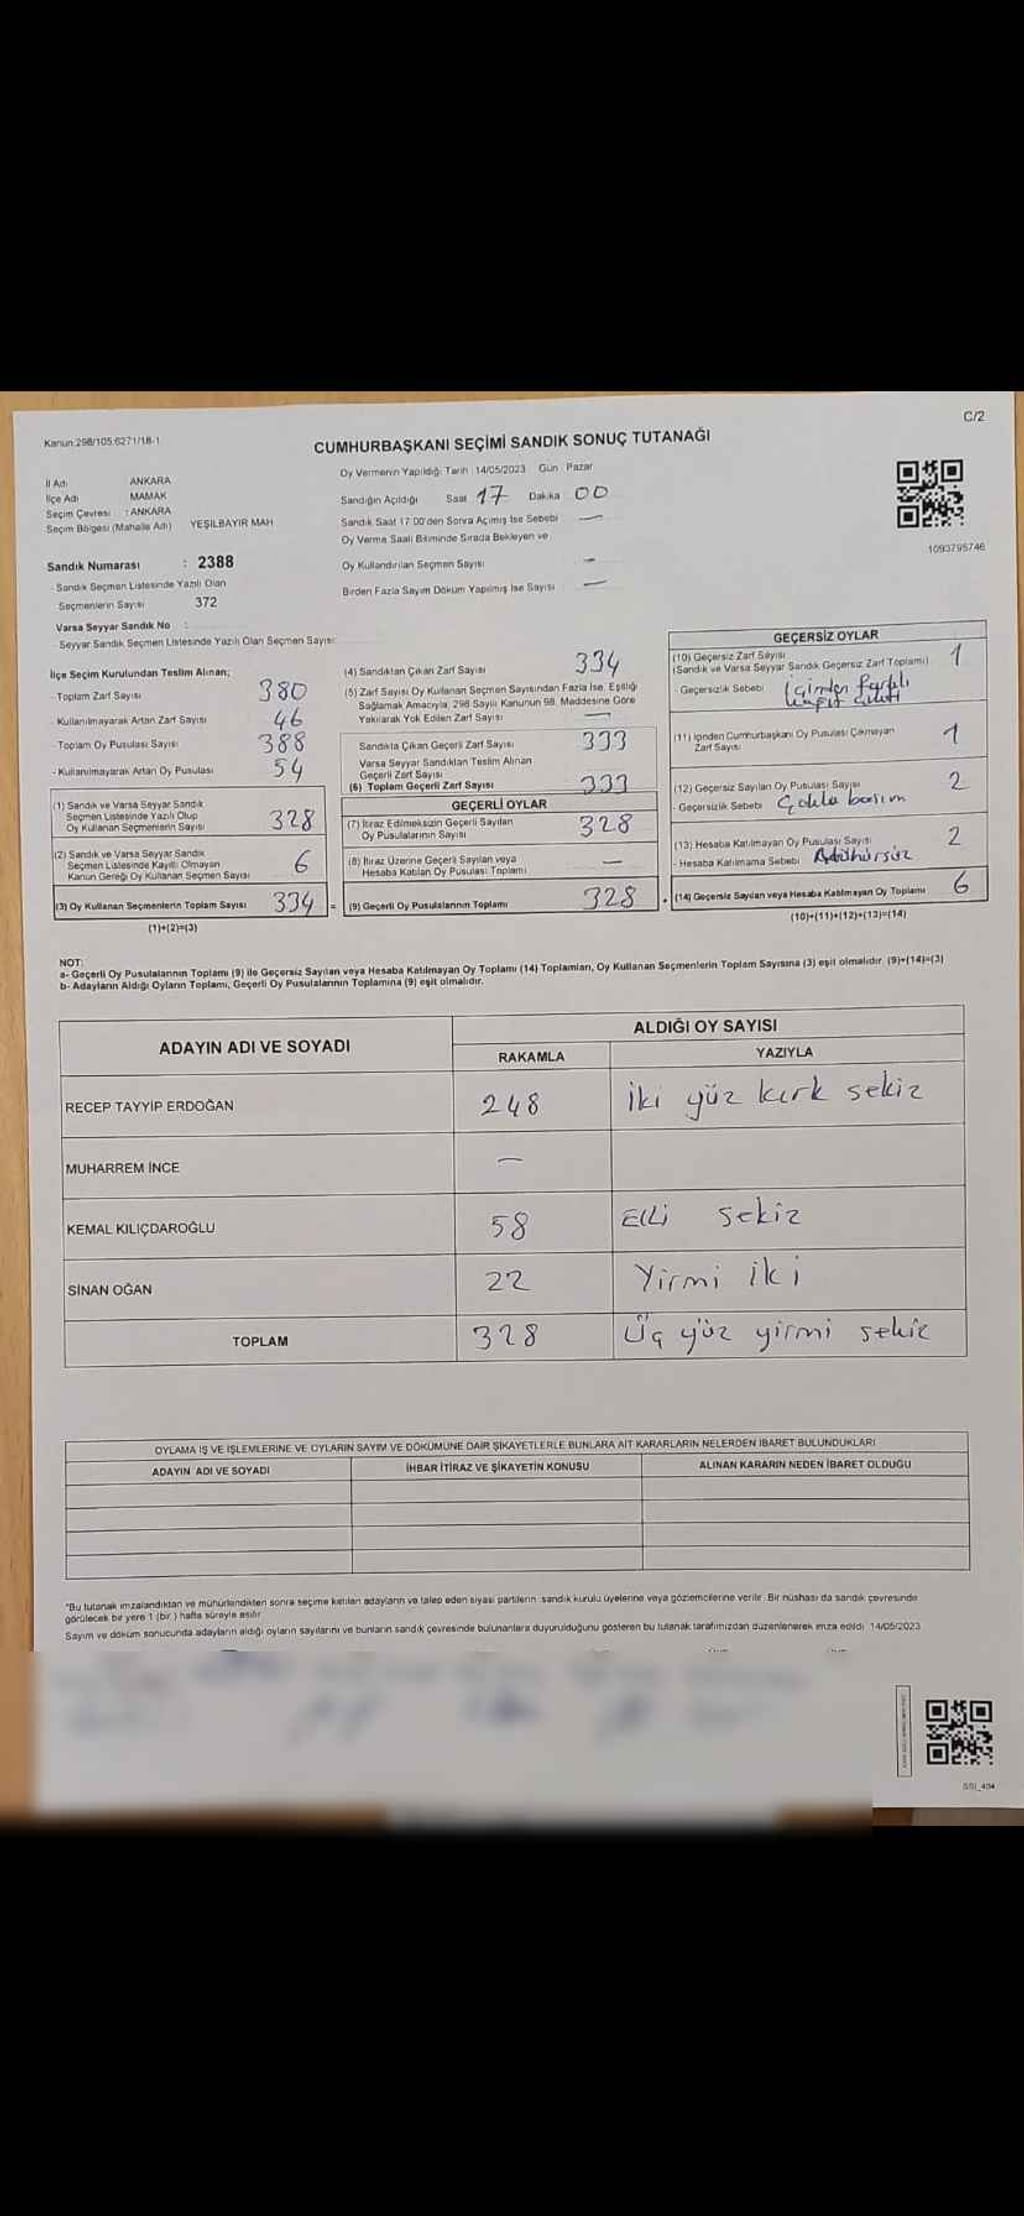 C/2
Kanun:298/105.6271/18-1
CUMHURBAŞKANI SEÇİMİ SANDIK SONUÇ TUTANAĞI
İl Adı ANKARA
İlçe Adı MAMAK
Seçim Çevresi : ANKARA
Seçim Bölgesi (Mahalle Adı) YEŞİLBAYIR MAH
Sandık Numarası : 2388
- Sandık Seçmen Listesinde Yazılı Olan
Seçmenlerin Sayısı 372
Varsa Seyyar Sandık No :
Seyyar Sandık Seçmen Listesinde Yazılı Olan Seçmen Sayısı:
Oy Vermenin Yapıldığı Tarih : 14/05/2023 Gün : Pazar
Sandığın Açıldığı Saat 17 Dakika 00
Sandık Saat 17.00'den Sonra Açılmış İse Sebebi —
Oy Verme Saati Bitiminde Sırada Bekleyen ve
Oy Kullandırılan Seçmen Sayısı —
Birden Fazla Sayım Döküm Yapılmış İse Sayısı —
1093795746
İlçe Seçim Kurulundan Teslim Alınan;
- Toplam Zarf Sayısı 380
- Kullanılmayarak Artan Zarf Sayısı 46
- Toplam Oy Pusulası Sayısı 388
- Kullanılmayarak Artan Oy Pusulası 54
(1) Sandık ve Varsa Seyyar Sandık
Seçmen Listesinde Yazılı Olup
Oy Kullanan Seçmenlerin Sayısı 328
(2) Sandık ve Varsa Seyyar Sandık
Seçmen Listesinde Kayıtlı Olmayan
Kanun Gereği Oy Kullanan Seçmen Sayısı 6
(3) Oy Kullanan Seçmenlerin Toplam Sayısı 334 =
(1)+(2)=(3)
(4) Sandıktan Çıkan Zarf Sayısı 334
(5) Zarf Sayısı Oy Kullanan Seçmen Sayısından Fazla İse, Eşitliği
Sağlamak Amacıyla, 298 Sayılı Kanunun 98. Maddesine Göre
Yakılarak Yok Edilen Zarf Sayısı —
Sandıkta Çıkan Geçerli Zarf Sayısı 333
Varsa Seyyar Sandıklan Teslim Alınan
Geçerli Zarf Sayısı
(6) Toplam Geçerli Zarf Sayısı 333
GEÇERLİ OYLAR
(7) İtiraz Edilmeksizin Geçerli Sayılan
Oy Pusulalarının Sayısı 328
(8) İtiraz Üzerine Geçerli Sayılan veya
Hesaba Katılan Oy Pusulası Toplamı —
(9) Geçerli Oy Pusulalarının Toplamı 328
GEÇERSİZ OYLAR
(10) Geçersiz Zarf Sayısı 1
(Sandık ve Varsa Seyyar Sandık Geçersiz Zarf Toplamı)
- Geçersizlik Sebebi İçinden farklı
(11) İçinden Cumhurbaşkanı Oy Pusulası Çıkmayan
Zarf Sayısı 1
(12) Geçersiz Sayılan Oy Pusulası Sayısı 2
- Geçersizlik Sebebi Çoklu basım
(13) Hesaba Katılmayan Oy Pusulası Sayısı 2
- Hesaba Katılmama Sebebi Mühürsüz
(14) Geçersiz Sayılan veya Hesaba Katılmayan Oy Toplamı 6
(10)+(11)+(12)+(13)=(14)
NOT:
a- Geçerli Oy Pusulalarının Toplamı (9) ile Geçersiz Sayılan veya Hesaba Katılmayan Oy Toplamı (14) Toplamları, Oy Kullanan Seçmenlerin Toplam Sayısına (3) eşit olmalıdır. (9)+(14)=(3)
b- Adayların Aldığı Oyların Toplamı, Geçerli Oy Pusulalarının Toplamına (9) eşit olmalıdır.
ADAYIN ADI VE SOYADI
ALDIĞI OY SAYISI
RAKAMLA YAZIYLA
RECEP TAYYİP ERDOĞAN 248 İki yüz kırk sekiz
MUHARREM İNCE —
KEMAL KILIÇDAROĞLU 58 Elli sekiz
SİNAN OĞAN 22 Yirmi iki
TOPLAM 328 Üç yüz yirmi sekiz
OYLAMA İŞ VE İŞLEMLERİNE VE OYLARIN SAYIM VE DÖKÜMÜNE DAİR ŞİKAYETLERLE BUNLARA AİT KARARLARIN NELERDEN İBARET BULUNDUKLARI
ADAYIN ADI VE SOYADI İHBAR İTİRAZ VE ŞİKAYETİN KONUSU ALINAN KARARIN NEDEN İBARET OLDUĞU
*Bu tutanak imzalandıktan ve mühürlendikten sonra seçime katılan adayların ve talep eden siyasi partilerin sandık kurulu üyelerine veya gözlemcilerine verilir. Bir nüshası da sandık çevresinde
görülecek bir yere 1 (bir ) hafta süreyle asılır.
Sayım ve döküm sonucunda adayların aldığı oyların sayılarını ve bunların sandık çevresinde bulunanlara duyurulduğunu gösteren bu tutanak tarafımızdan düzenlenerek imza edildi. 14/05/2023